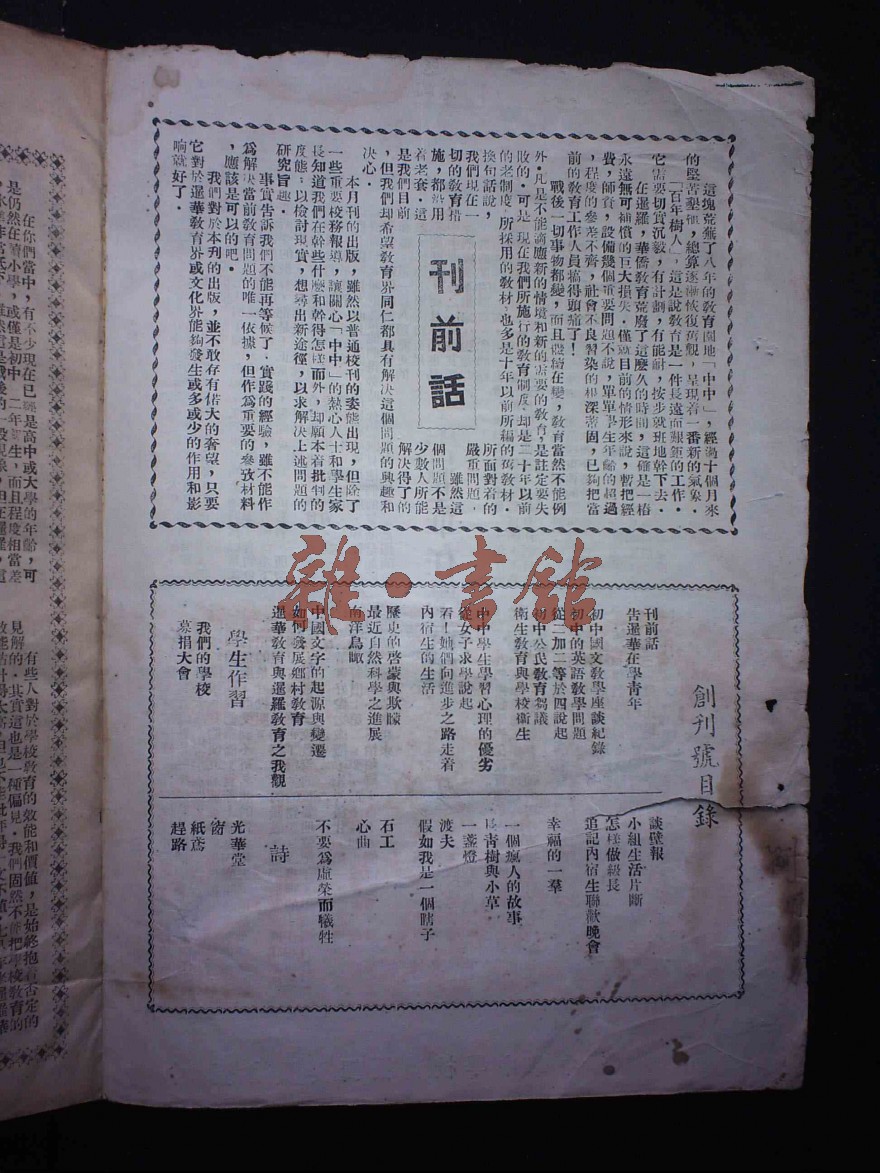 刊前話
這塊荒蕪了八年的教育園地「中中」，經過十個月來
的堅苦墾植，總算逐漸恢復舊觀，呈現着一番新的氣象．
「百年樹人」，這是說教育是一件長遠而艱鉅的工作．
它需要切實沉毅，有計劃，有能耐，按步就班地幹下去．
在暹羅，華僑教育荒廢了這麼久的時間，這確是一樁
永遠無可補償的巨大損失．僅就目前的情形來說，暫把經
費，師資，設備幾個重要問題不說，單單學生年齡的超過
，程度的參差不齊，社會不良習染的根深蒂固，已夠把當
前的教育工作人員搞得頭痛了！
戰後一切事物都變，而且繼續在變，教育當然不能例
外．凡是不能適應新的情境和新的需要的教育，是註定要失
敗的．可是，現在我們所施行的教育制度，却是二十年以前
的老制度，所採用的教材，也多是十年以前所編的舊教材．
換句話說，
我們現在一
切的教育措
施，都沿用
着老套．這
是我們目前
所面對着的
嚴重問題．
雖然這
個問題不是
少數人所能
解決得了的
，但我們却希望教育界同仁都具有解決這個問題的興趣和
決心．
本月刊的出版，雖然以普通校刊的姿態出現，但除了
一些重要校務報導，讓關心「中中」的熱心人士和學生家
長知道我們在幹些什麼和幹得怎樣而外，却願本着批判的
度態：以檢討現實，想尋出新途徑，以求解決上述問題的
研究旨趣．
事實告訴我們不能再等候了．實踐的經驗，雖不能作
爲解決當前教育問題的唯一依據，但作爲重要的參攷材料
，應該是可以的吧．
我們對於本刊的出版，並不敢存有偌大的奢望，只要
它對於暹華教育界或文化界能夠發生或多或少的作用和影
响就好了．
創刊號目錄
刊前話
告暹華在學青年
初中國文教學座談紀錄
初中的英語教學問題
從二加二等於四說起
初中公民教育芻議
衛生教育與學校衛生
中中學生學習心理的優劣
從女子求學說起
看！她們向進步之路走着
內宿生的生活
歷史的啓蒙與欺矇
最近自然科學之進展
南洋鳥瞰
中國文字的起源與變遷
如何發展鄉村教育
暹華教育與暹羅教育之我觀
學生作習
我們的學校
募捐大會
談壁報
小組生活片斷
怎樣做級長
追記內宿生聯歡晚會
幸福的一羣
一個瘋人的故事
長青樹與小草
一盞燈
渡夫
假如我是一個瞎子
石工
心曲
不要爲虛榮而犧牲
詩
光華堂
窗
紙鳶
趕路
雜·書館
在你們當中，有不少現在已經是高中或大學的年齡，可
是仍然在讀小學，或僅是初中一二年新生，而且程度相當差
有些人對於學校教育的效能和價值，是始終抱着否定的
見解的．其實這也是一種偏見．我們固然不能把學校教育的